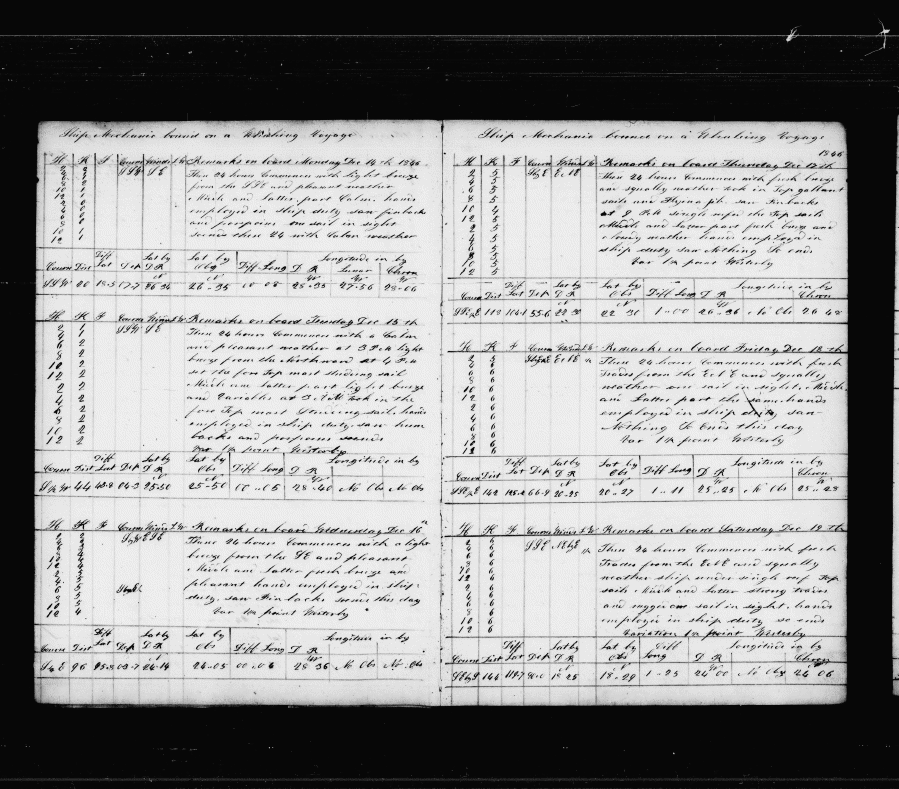 Ship Mechanic bound on a Whaling Voyage
H K F Courses Winds L W Remarks on board Monday Dec 14th 1846
2 2 SSW SE Then 24 hours Commences with light breeze
from the SSE and pleasant weather
Middle and Latter part Calm. hands
employed in ship duty saw finbacks
and porpoises one sail in sight
so ends these 24 with Calm weather
10 1
12 1
Diff Lat by Lat by Longitude in by
Course Dist Lat Dep D R Obs Diff Long D R Lunar Chron
SSW 20 18-5 26-34 26-35 00-08 28-35 27-56 28-06
H K F Courses Winds L W Remarks on board Tuesday Dec 15th
2 1 SSW SE Then 24 hours Commences with a Calm
4 1 and pleasant weather at 3 P M light
6 2 breeze from the Northward at 4 P M
8 2 set the fore Top most studding sail
10 2 Middle and Latter part light breeze
12 2 and Variables at 3 A M took in the
2 2 fore Top most Studding sail. hands
4 2 employed in ship duty. saw hum
6 2 backs and porpoises so ends
8 2 Var 1½ point Westerly
10 2
12 2
Diff Lat by Lat by Longitude in by
Course Dist Lat Dep D R Obs Diff Long D R
44 25-50 25-50 00-05 28-40 No Obs No Obs
H K F Courses Winds L W Remarks on board Wednesday Dec 16th
Then 24 hours Commences with a light
breeze from the SE and pleasant
Middle and Latter fresh breeze and
pleasant hands employed in ship
duty. saw Fin backs so ends this day
Var 1½ point Westerly
10 5
12 4
Diff Lat by Lat by Longitude in by
Course Dist Lat Dep D R Obs Diff Long D R
96 24-14 24-05 00-06 28-36 No Obs No Obs
Ship Mechanic bound on a Whaling Voyage
1846
H K F Courses Winds L W Remarks on board Thursday Dec 17th
2 5 SbyE EbE Then 24 hours Commences with fresh breeze
4 5 and squally weather took in Top gallant
6 5 sails and Flying jib. saw Finbacks
8 5 at 9 P M single reefed the Top sails
10 4 Middle and Latter part fresh breeze and
12 5 cloudy weather hands employed in
2 5 ship duty saw Nothing So ends
4 5 Var 1½ point Westerly
6 5
8 5
10 5
12 5
Diff Lat by Lat by Longitude in by
Course Dist Lat Dep D R Obs Diff Long D R Chron
55-6 22 30 22 30 1-00 26-36 No Obs 26 48
H K F Courses Winds L W Remarks on board Friday Dec 18th
2 5 Then 24 hours Commences with fresh
4 6 Trades from the EbE and squally
6 6 weather one sail in sight, Middle
8 6 and Latter part the same hands
10 6 employed in ship duty, saw
12 6 Nothing So Ends this day
2 6 Var 1½ point Westerly
4 6
6 6
8 6
10 6
12 6
Diff Lat by Lat by Longitude in by
Course Dist Lat Dep D R Obs Diff Long D R Chron
142 66-9 20-25 20-27 1-11 25-25 No Obs 25-28
H K F Courses Winds L W Remarks on board Saturday Dec 19th
2 6 SSE EbE Then 24 hours Commences with fresh
4 6 Trades from the EbE and squally
6 6 weather ship under single reef Top
8 6 sails Middle and Latter strong trades
10 6 and rugged one sail in sight, hands
12 6 employed in ship duty so ends
2 6 Variation 1½ point Westerly
4 6
6 6
8 6
10 6
12 6
Diff Lat by Lat by Diff Longitude in by
Course Dist Lat Dep D R Obs Long D R Chron
144 18 25 18-29 1-25 24 00 No Obs 24 06